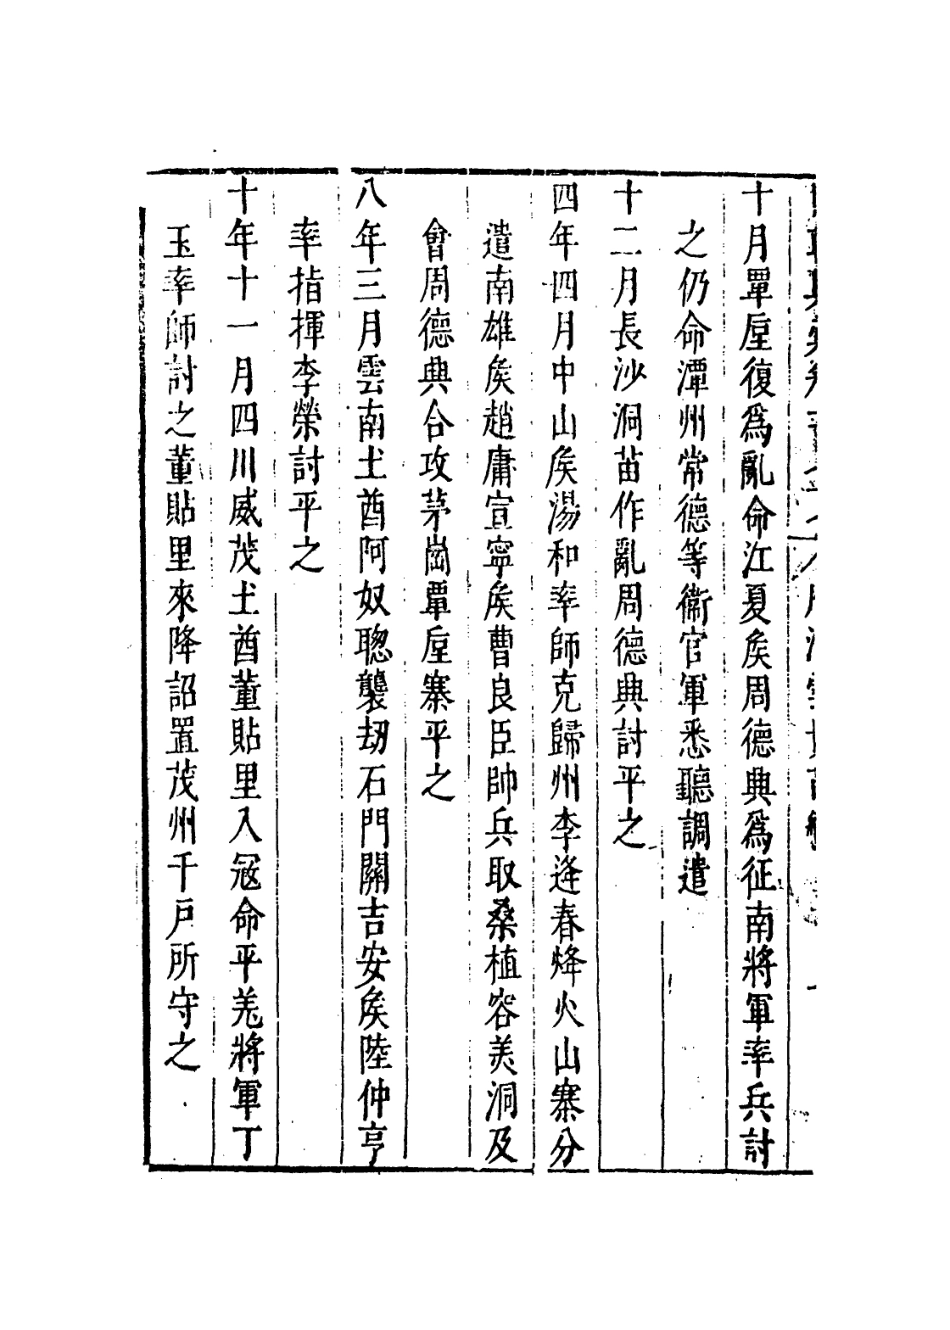 十月覃垕復爲亂命江夏矦周德興爲征南將軍率兵討
之仍命潭州常德等衞官軍悉聽調遣
十二月長沙洞苗作亂周德興討平之
四年四月中山矦湯和率師克歸州李逢春烽火山寨分
遣南雄矦趙庸宣寧矦曹良臣帥兵取桑植容美洞及
會周德興合攻茅崗覃垕寨平之
八年三月雲南土酋阿奴聰襲刼石門關吉安矦陸仲亨
率指揮李榮討平之
十年十一月四川威茂土酋董貼里入寇命平羌將軍丁
玉率師討之董貼里來降詔置茂州千戶所守之